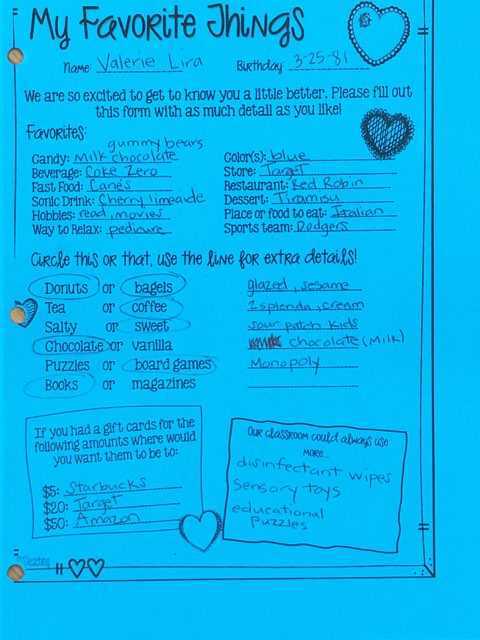 My Favorite Things
Name: Valerie Lira Birthday: 3-25-81
We are so excited to get to know you a little better. Please fill out
this form with as much detail as you like!
Favorites:
gummy bears
Candy: Milk chocolate
Beverage: Coke Zero
Fast Food: Canes
Sonic Drink: Cherry limeade
Hobbies: read, movies
Way to Relax: pedicure
Color(s): blue
Store: Target
Restaurant: Red Robin
Dessert: Tiramisu
Place or food to eat: Italian
Sports team: Dodgers
Circle this or that, use the line for extra details!
Donuts or bagels glazed, sesame
Tea or coffee 2 splenda, cream
Salty or sweet sour patch kids
Chocolate or vanilla chocolate (Milk)
Puzzles or board games Monopoly
Books or magazines
If you had a gift cards for the
following amounts where would
you want them to be to:
$5: Starbucks
$20: Target
$50: Amazon
Our classroom could always use
more...
disinfectant wipes
Sensory toys
educational
puzzles